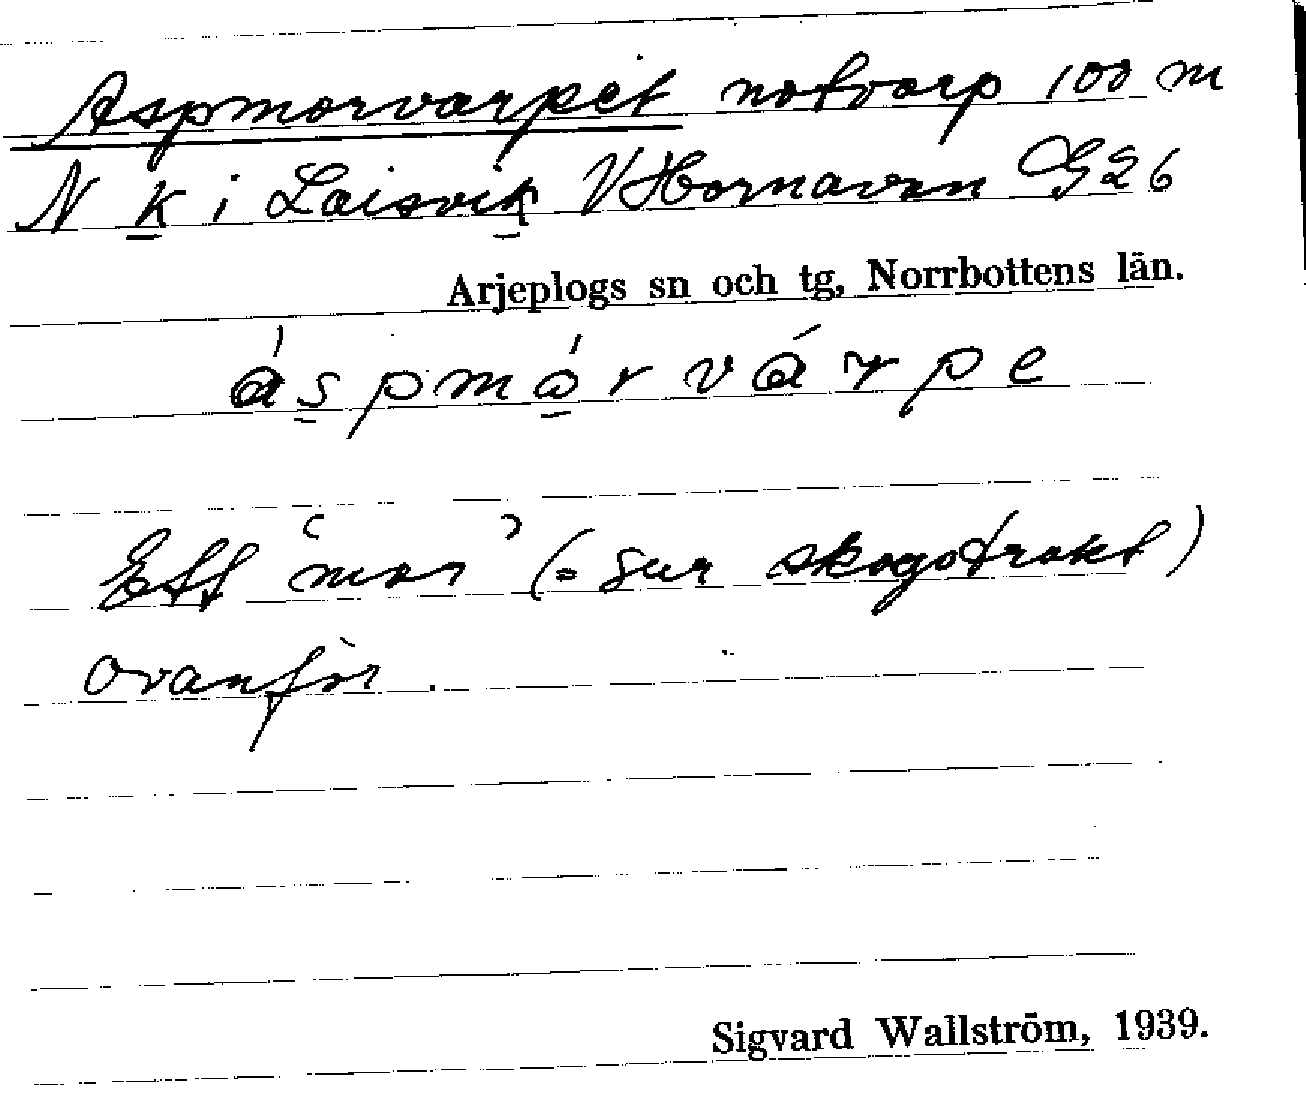 Aspmorvarpet notvarp 100 m
N k i Laisvik V Hornavan G26
Arjeplogs sn och tg, Norrbottens län.
áspmórvárpe
Ett 'mor' (= sur skogstrakt)
ovanför.
Sigvard Wallström, 1939.